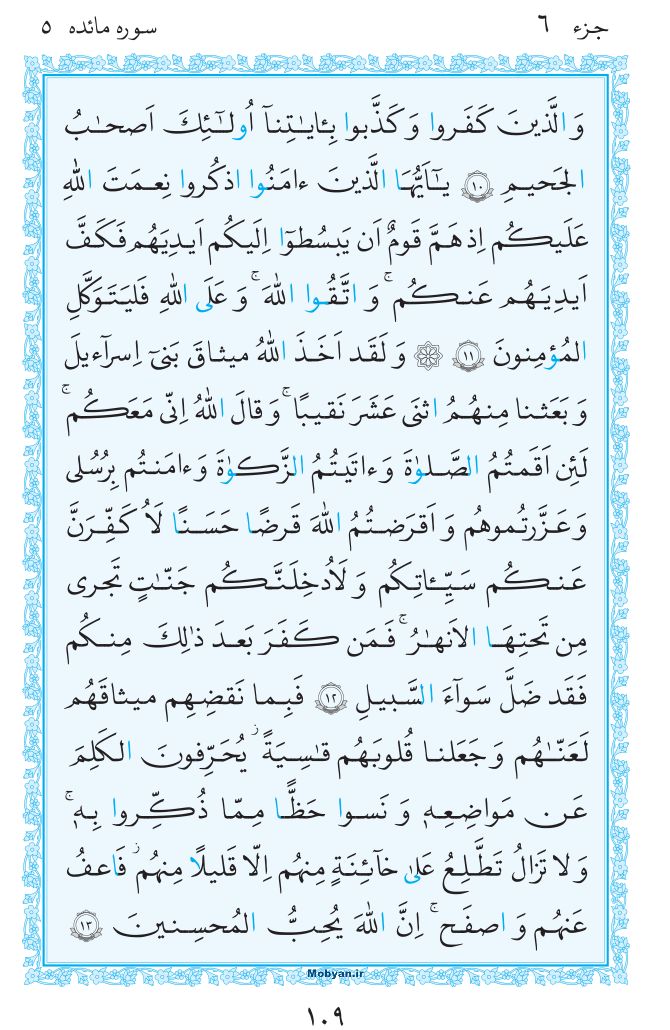 جزء ۶
سوره مائده ۵
وَالَّذينَ كَفَروا وَ كَذَّبوا بِـٔايـٰتِنآ اُولـٰٓئِكَ اَصحـٰبُ
الجَحيمِ ۱۰ يـٰٓاَيُّهَا الَّذينَ ءامَنُوا اذكُروا نِعمَتَ اللهِ
عَلَيكُم اِذ هَمَّ قَومٌ اَن يَبسُطوٓا اِلَيكُم اَيدِيَهُم فَكَفَّ
اَيدِيَهُم عَنكُم ۚ وَ اتَّقُوا اللهَ ۚ وَ عَلَى اللهِ فَليَتَوَكَّلِ
المُؤمِنونَ ۱۱ ۞ وَ لَقَد اَخَذَ اللهُ ميثاقَ بَنىٓ اِسرآءيلَ
وَ بَعَثنا مِنهُمُ اثنَى عَشَرَ نَقيبًا ۚ وَ قالَ اللهُ اِنّى مَعَكُم ۚ
لَئِن اَقَمتُمُ الصَّلوٰةَ وَ ءاتَيتُمُ الزَّكوٰةَ وَ ءامَنتُم بِرُسُلى
وَ عَزَّرتُموهُم وَ اَقرَضتُمُ اللهَ قَرضًا حَسَنًا لَاُكَفِّرَنَّ
عَنكُم سَيِّـٔاتِكُم وَ لَاُدخِلَنَّكُم جَنّـٰتٍ تَجرى
مِن تَحتِهَا الاَنهـٰرُ ۚ فَمَن كَفَرَ بَعدَ ذٰلِكَ مِنكُم
فَقَد ضَلَّ سَوآءَ السَّبيلِ ۱۲ فَبِما نَقضِهِم ميثاقَهُم
لَعَنّـٰهُم وَ جَعَلنا قُلوبَهُم قـٰسِيَةً ۖ يُحَرِّفونَ الكَلِمَ
عَن مَواضِعِهٖ وَ نَسوا حَظًّا مِمّا ذُكِّروا بِهٖ ۚ
وَ لا تَزالُ تَطَّلِعُ عَلىٰ خآئِنَةٍ مِنهُم اِلّا قَليلًا مِنهُم ۖ فَاعفُ
عَنهُم وَ اصفَح ۚ اِنَّ اللهَ يُحِبُّ المُحسِنينَ ۱۳
Mobyan.ir
۱۰۹